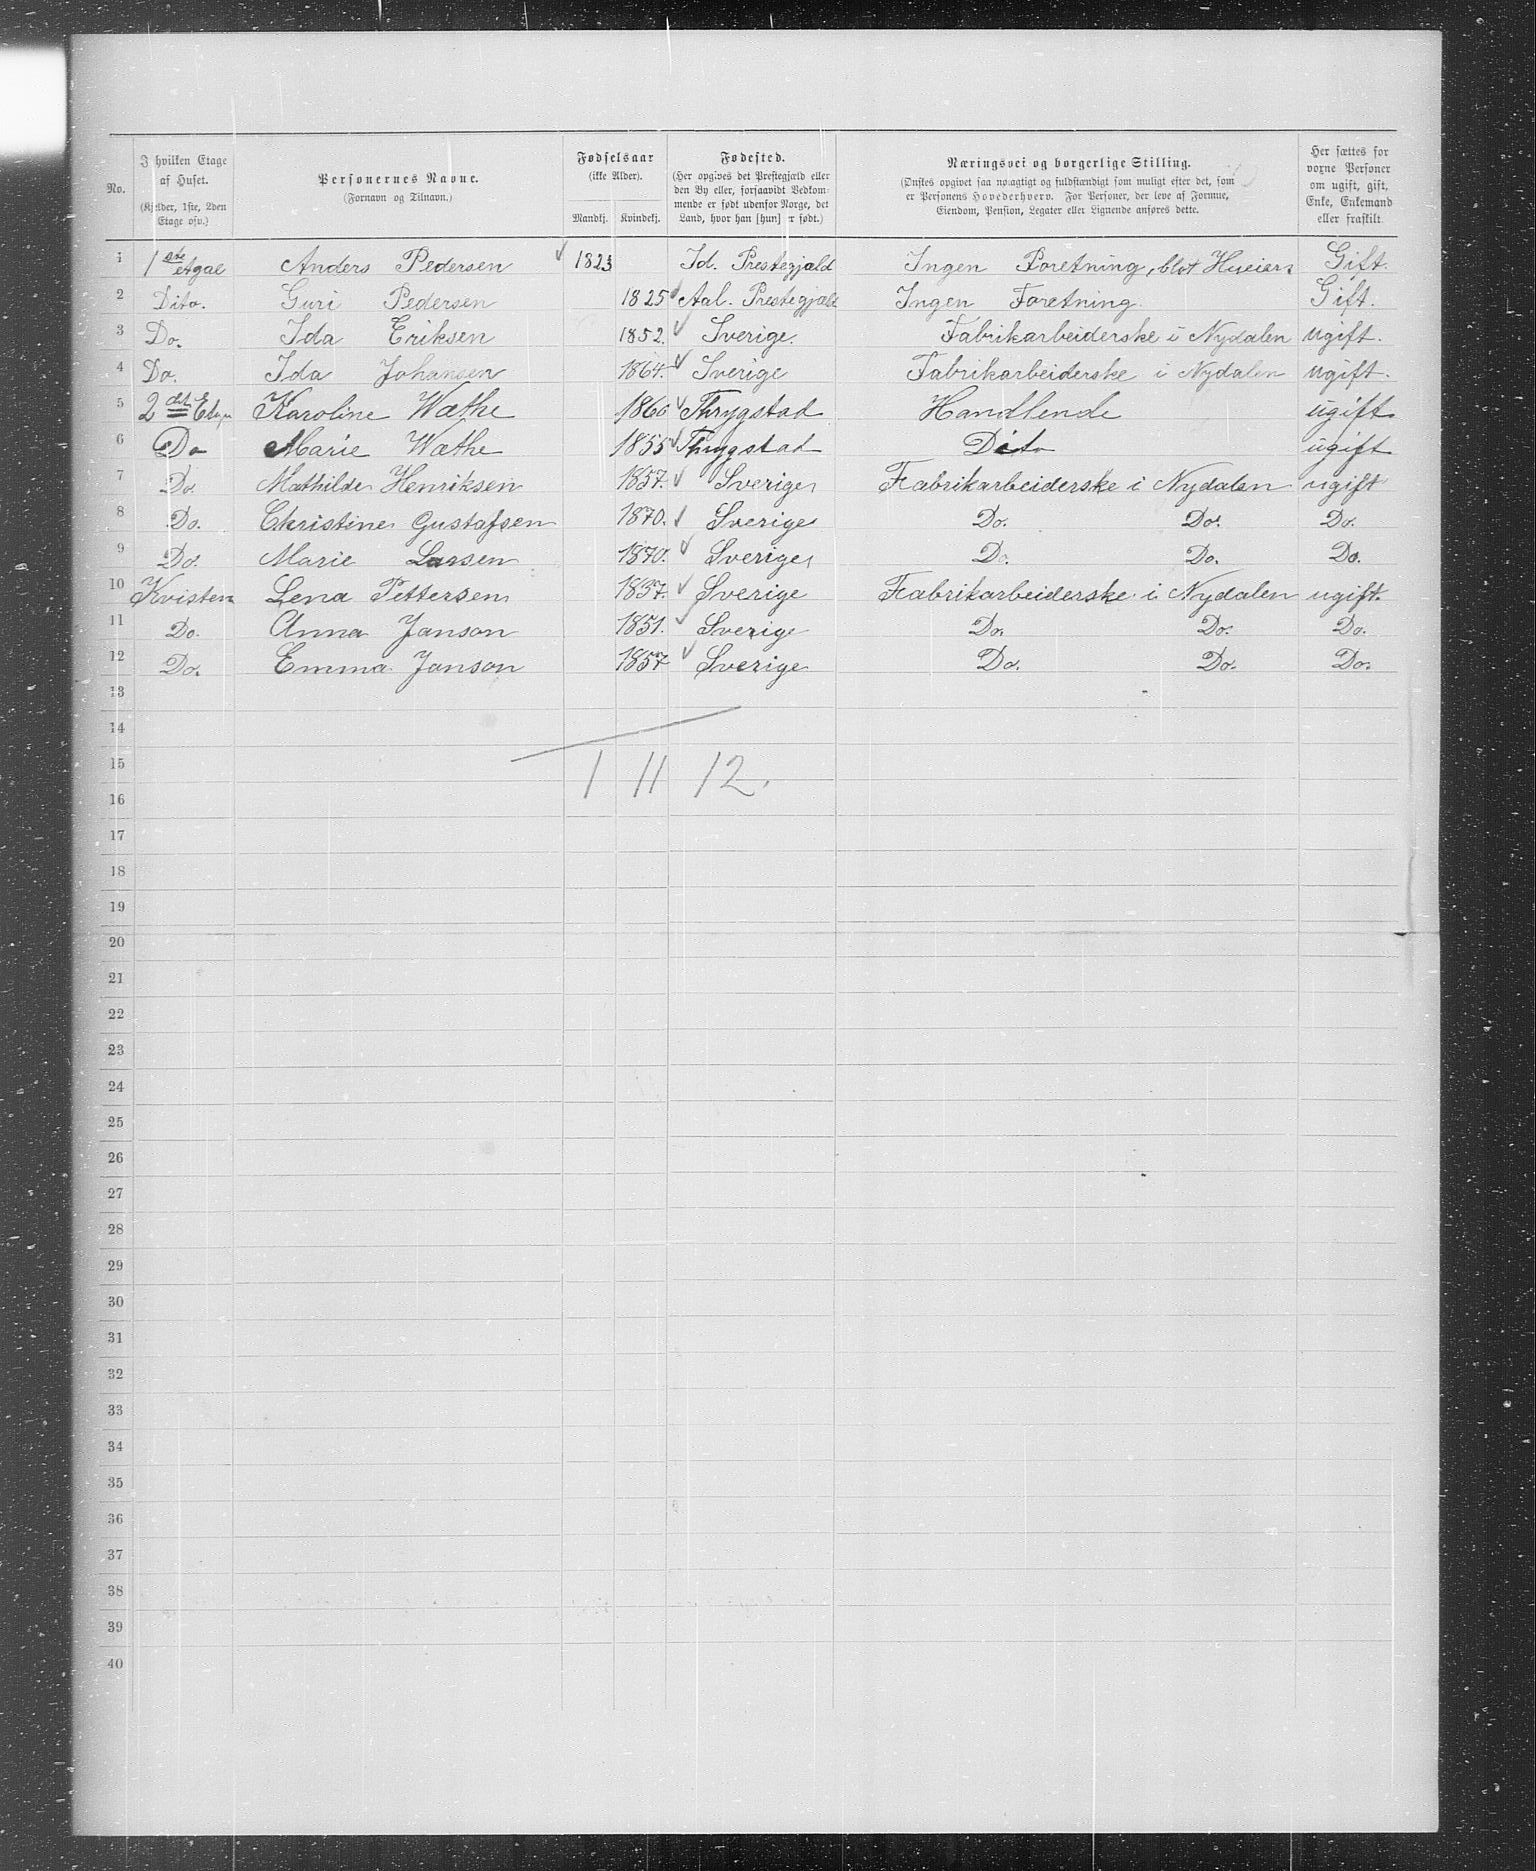 No.
I hvilken Etage af Huset. (Kjelder, 1ste, 2den Etage osv.)
Personernes Navne. (Fornavn og Tilnavn.)
Fødselsaar (ikke Alder). Mandkj. Kvindekj.
Fødested. (Her opgives det Prestegjæld eller den By eller, forsaavidt Vedkommende er født udenfor Norge, det Land, hvor han [hun] er født.)
Næringsvei og borgerlige Stilling. (Ønskes opgivet saa nøiagtigt og fuldstændigt som muligt efter det, som er Personens Hovederhverv. For Personer, der leve af Formue, Eiendom, Pension, Legater eller Lignende anføres dette.
Her sættes for voxne Personer om ugift, gift, Enke, Enkemand eller fraskilt
1 1 ste etgae Anders Pedersen 1823 Id. Prestegjæld Ingen Foretning, blot Hueiers Gift.
2 Dito. Guri Pedersen 1825 Aal. Prestegjæld Ingen Foretning. Gift.
3 Do. Ida Eriksen 1852. Sverige. Fabrikarbeiderske i Nydalen ugift.
4 Do. Ida Johansen 1864. Sverige Fabrikarbeiderske i Nydalen ugift.
5 2 det Karoline Wæthe 1860 Thrygstad Handlende ugift
6 Do Marie Wæthe 1855 Thrygstad Dito ugift
7 Do. Mathilde Henriksen 1857. Sverige Fabrikarbeiderske i Nydalen ugift
8 Do. Christine Gustafsen 1870. Sverige Do. Do. Do.
9 Do. Marie Larsen 1870. Sverige D. Do. Do.
10 Kvisten Lena Pettersen 1857. Sverige Fabrikarbeiderske i Nydalen ugift.
11 Do. Anna Janson 1851. Sverige Do. Do. Do.
12 Do. Emma Janson 1857 Sverige Do. Do. Do.
13
14
15 1 11 12.
16
17
18
19
20
21
22
23
24
25
26
27
28
29
30
31
32
33
34
35
36
37
38
39
40